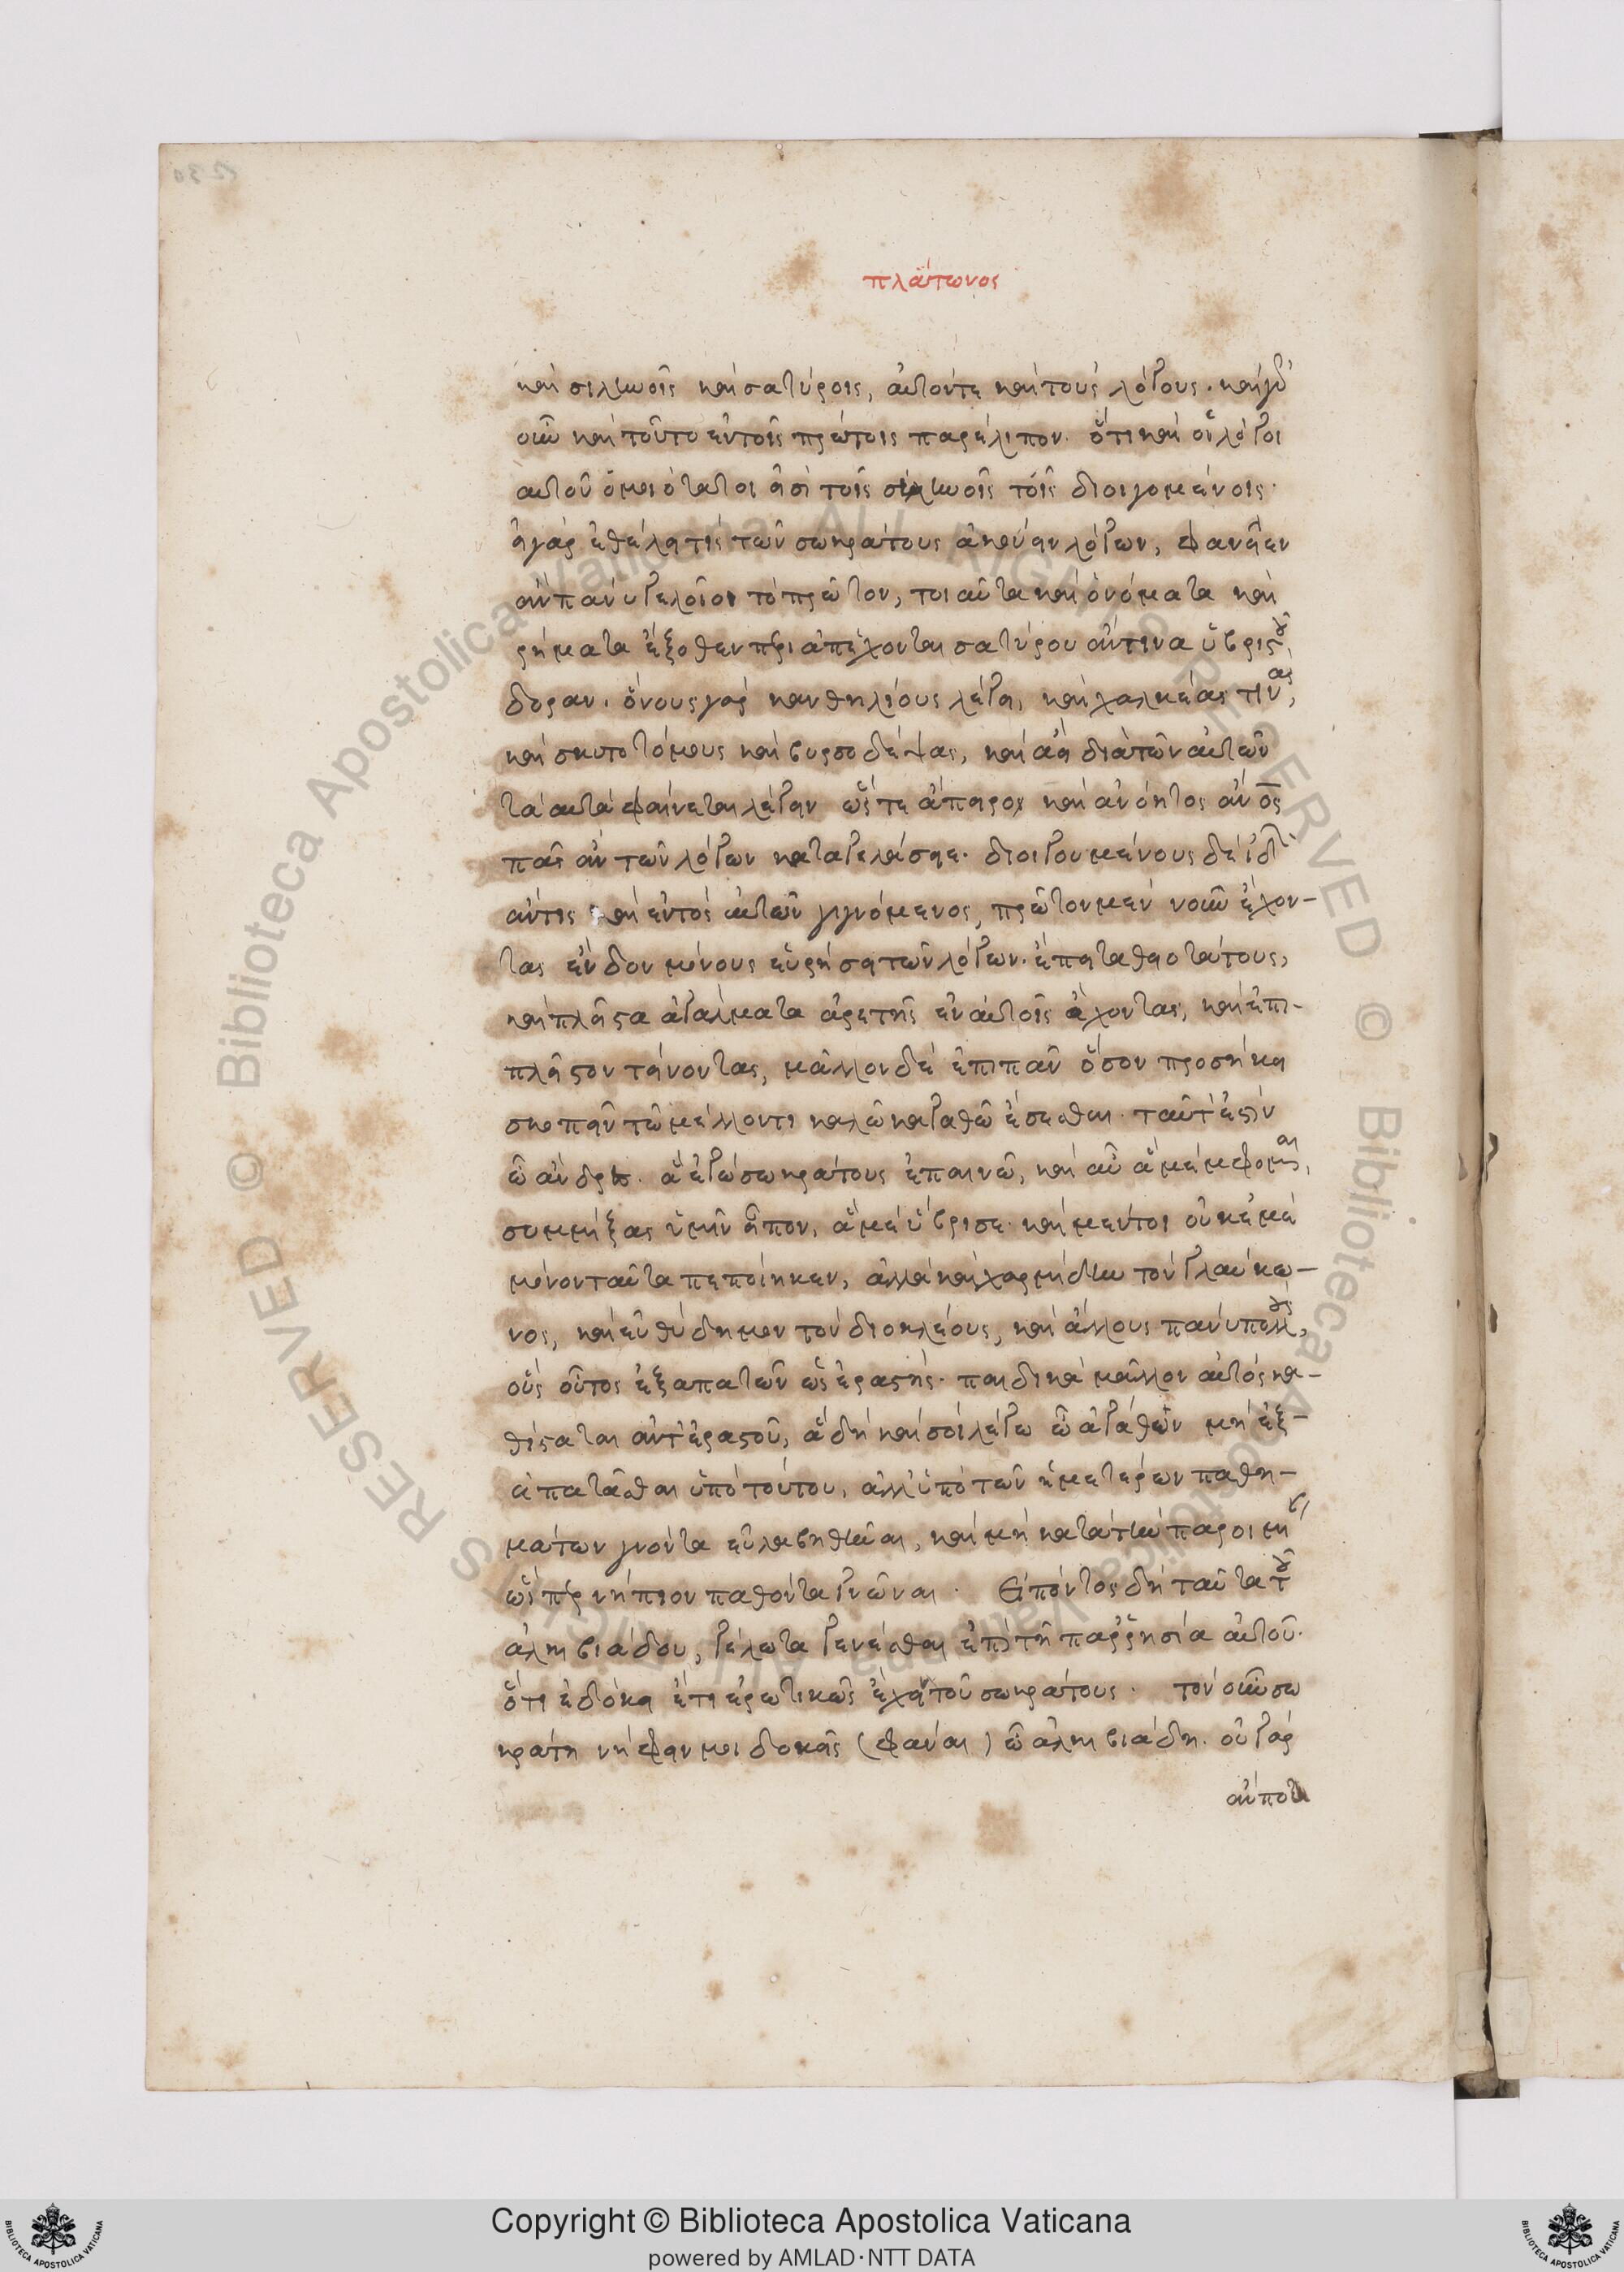 πλάτωνος
καὶ σιληνοῖς καὶ σατύροις, αὐτόν τε καὶ τοὺς λόγους. καὶ γὰρ
οὖν καὶ τοῦτο ἐν τοῖς πρώτοις παρέλιπον. ὅτι καὶ οἱ λόγοι
αὐτοῦ ὁμοιότατοί εἰσι τοῖς σιληνοῖς τοῖς διοιγομένοις.
εἰ γὰρ ἐθέλει τις τῶν σωκράτους ἀκούειν λόγων, φανεῖεν
ἂν πάνυ γελοῖοι τὸ πρῶτον, τοιαῦτα καὶ ὀνόματα καὶ
ῥήματα ἔξοθεν περιαπέχονται σατύρου ἄν τινα ὑβριστοῦ
δοράν. ὄνους γὰρ κανθηλίους λέγει, καὶ χαλκέας τινὰς,
καὶ σκυτοτόμους καὶ βυρσοδέψας, καὶ ἀεὶ διὰ τῶν αὐτῶν
τὰ αὐτὰ φαίνεται λέγειν ὥστε ἄπειρος καὶ ἀνόητος ἄνος
πᾶς ἂν τῶν λόγων καταγελάσειε. διοιγουμένους δὲ ἰδὼν
ἄν τις καὶ ἐντὸς αὐτῶν γιγνόμενος, πρῶτον μὲν νοῦν ἔχον-
τας ἔνδον μόνους εὑρήσει τῶν λόγων. ἔπειτα θειοτάτους,
καὶ πλεῖστα ἀγάλματα ἀρετῆς ἐν αὐτοῖς ἔχοντας, καὶ ἐπι-
πλεῖστον τείνοντας, μᾶλλον δὲ ἐπιπᾶν ὅσον προσήκει
σκοπεῖν τῷ μέλλοντι καλῷ καγαθῷ ἔσεσθαι. ταῦτ' ἐστὶν
ὦ ἄνδρες. ἃ ἐγὼ σωκράτους ἐπαινῶ, καὶ αὖ ἃ μέμφομαι,
συμμίξας ὑμῖν εἶπον, ἅ με ὕβρισε. καὶ μέντοι οὐκ ἐμὲ
μόνον ταῦτα πεποίηκεν, ἀλλὰ καὶ χαρμίδην τὸν γλαύκω-
νος, καὶ εὐθύδημον τὸν διοκλέους, καὶ ἄλλους πάνυ πολλοὺς,
οὓς οὗτος ἐξαπατῶν ὡς ἐραστής. παιδικὰ μᾶλλον αὐτὸς κα-
θίσαται ἀντ' ἐραστοῦ, ἃ δὴ καὶ σοὶ λέγω ὦ ἀγάθων μὴ ἐξ-
απατᾶσθαι ὑπὸ τούτου, ἀλλ' ὑπὸ τῶν ἡμετέρων παθη-
μάτων γνόντα εὐλαβηθῆναι, καὶ μὴ κατὰ τὴν παροιμίαν
ὥσπερ νήπιον παθόντα γνῶναι. Εἰπόντος δὴ ταῦτα τοῦ
ἀλκιβιάδου, γέλωτα γενέσθαι ἐπὶ τῇ παῤῥησίᾳ αὐτοῦ.
ὅτι ἐδόκει ἔτι ἐρωτικῶς ἔχειν τοῦ σωκράτους. τὸν οὖν σω
κράτη νήφειν μοι δοκεῖς (φάναι) ὦ ἀλκιβιάδη. οὐ γὰρ
ἄν ποτε
Copyright © Biblioteca Apostolica Vaticana
powered by AMLAD·NTT DATA